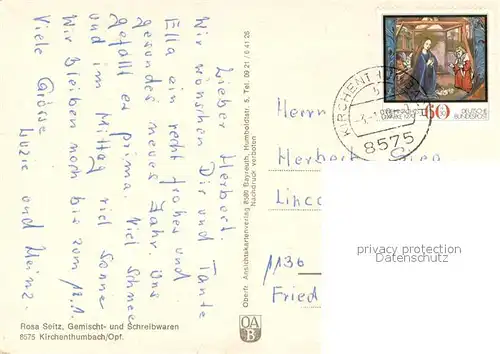 Lieber Herbert.
Wir wünschen Dir und Tante
Ella ein recht frohes und
gesundes neues Jahr. Uns
gefällt es prima. Viel Schnee
und im Mittag viel Sonne
Wir bleiben noch bis zum 12.1.
Viele Grüsse
Luzie und Heinz.
Rosa Seitz, Gemischt- und Schreibwaren
8575 Kirchenthumbach/Opf.
Oberfr. Ansichtskartenverlag 8580 Bayreuth, Humboldtstr. 5, Tel. 09 21 / 6 41 26
Nachdruck verboten
OA
B
KIRCHENTH
8575
60
DEUTSCHE
BUNDESPOST
Herrn
Herbert
Linco
1136
Fried
privacy protection
Datenschutz